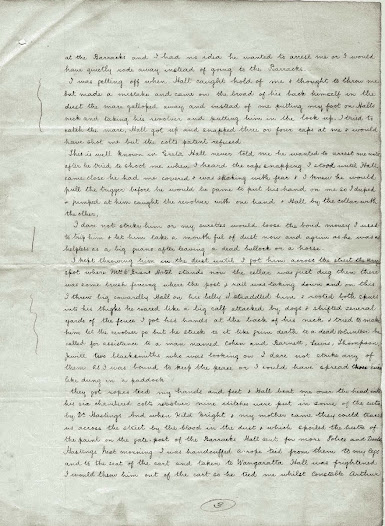 at the Barracks and I had no idea he wanted to arrest me or I would
have quietly rode away instead of going to the Barracks.
I was getting off when Hall caught hold of me & thought to throw me
but made a mistake and came on the broad of his back himself in the
dust the mare galloped away and instead of me putting my foot on Halls
neck and taking his revolver and putting him in the lock up. I tried to
catch the mare. Hall got up and snapped three or four caps at me & would
have shot me but the colts patent refused.
This is well known in Hall never told me he wanted to arrest me until
after he tried to shoot me when I heard the caps snapping I stood until Hall
came close he had me covered & was shaking with fear & I knew he would
pull the trigger before he would be game to put his hand on me so I duped
& jumped at him caught the revolver with one hand & Hall by the collar with
the other.
I dare not strike him or my sureties would loose the bond money I used
to trip him & let him take a mouth ful of dust now and again as he was as
helpless as a big guano after leaving a dead bullock or a horse.
I kept throwing him in the dust until I got him across the street the very
spot where Mrs O'Briens Hotel stands now the cellar was just dug then there
was some brush fencing where the post & rail was taking down and on this
I threw big cowardly Hall on his belly I straddled him & rooted both spurs
into his thighs he roared like a big calf attacked by dogs & shifted several
yards of the fence I got his hands at the back of his neck & tried to make
him let the revolver go but he stuck to it like grim death to a dead volunteer he
called for assistance to a man named Cohen and Barnett, Lewis, Thompson,
Jewitt two blacksmiths who was looking on I dare not strike any of
them as I was bound to keep the peace or I could have spread those
like dung in a paddock
they got ropes tied my hands and feet & Hall beat me over the head with
his six chambered colts revolver nine stitches were put in some of the cuts
by Dr Hastings And when Wild Wright & my mother came they could trace
us across the street by the blood in the dust & which spoiled the lustre of
the paint on the gate-post of the Barracks Hall sent for more Police and Doctor
Hastings Next morning I was handcuffed a rope tied from them to my legs
and to the seat of the cart and taken to Wangaratta Hall was frightened
I would throw him out of the cart so he tied me whilst Constable Arthur